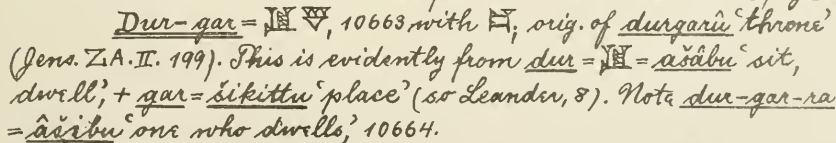 Dur-gar = 𒆪 𒃻, 10663, with 𒄑; orig. of durgarû ‘throne’
(Jens. ZA. II. 199). This is evidently from dur = 𒆪 = ašâbu ‘sit,
dwell,’ + gar = šikittu ‘place’ (so Leander, 8). Note dur-gar-ra
= âšibu ‘one who dwells,’ 10664.